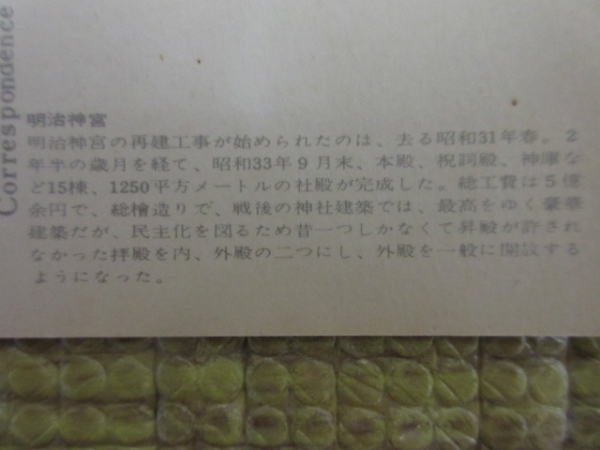 Correspondence
明治神宮
明治神宮の再建工事が始められたのは、去る昭和31年春。2
年半の歳月を経て、昭和33年9月末、本殿、祝詞殿、神庫な
ど15棟、1250平方メートルの社殿が完成した。総工費は5億
余円で、総檜造りで、戦後の神社建築では、最高をゆく豪華
建築だが、民主化を図るため昔一つしかなくて昇殿が許され
なかった拝殿を内、外殿の二つにし、外殿を一般に開放する
ようになった。